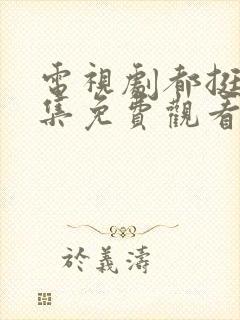 電視劇都挺
集免費觀看
於義濤